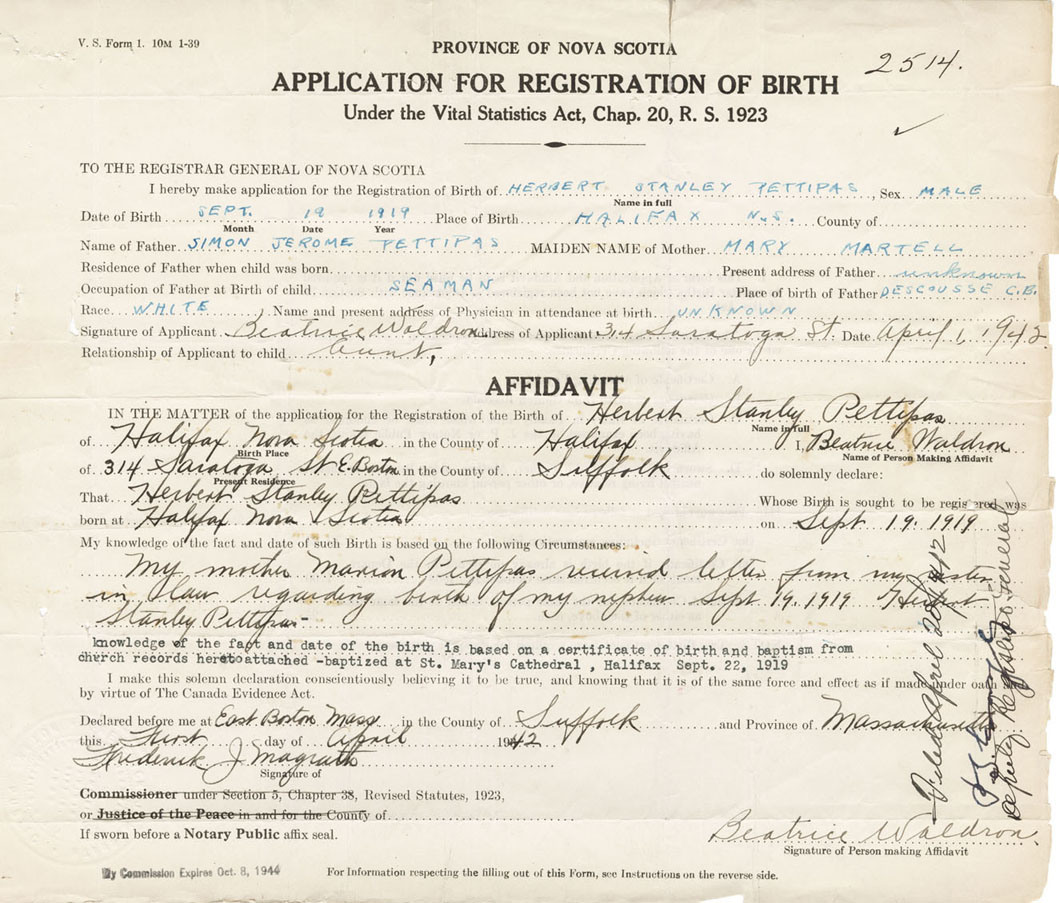 V. S. Form 1. 10M 1-39
PROVINCE OF NOVA SCOTIA
2514.
APPLICATION FOR REGISTRATION OF BIRTH
Under the Vital Statistics Act, Chap. 20, R. S. 1923
TO THE REGISTRAR GENERAL OF NOVA SCOTIA
I hereby make application for the Registration of Birth of HERBERT STANLEY PETTIPAS, Sex MALE
Name in full
Date of Birth SEPT. 19 1919 Place of Birth HALIFAX N.S. County of
Month Date Year
Name of Father SIMON JEROME PETTIPAS MAIDEN NAME of Mother MARY MARTELL
Residence of Father when child was born Present address of Father unknown
Occupation of Father at Birth of child SEAMAN Place of birth of Father DESCOUSSE C.B.
Race WHITE Name and present address of Physician in attendance at birth UNKNOWN
Signature of Applicant Beatrice Waldron Address of Applicant 314 Saratoga St. Date April 1, 1942
Relationship of Applicant to child Aunt,
AFFIDAVIT
IN THE MATTER of the application for the Registration of the Birth of Herbert Stanley Pettipas
Name in full
of Halifax Nova Scotia in the County of Halifax I, Beatrice Waldron
Birth Place Name of Person Making Affidavit
of 314 Saratoga St E. Boston in the County of Suffolk do solemnly declare:
Present Residence
That Herbert Stanley Pettipas Whose Birth is sought to be registered was
born at Halifax Nova Scotia on Sept 19. 1919
My knowledge of the fact and date of such Birth is based on the following Circumstances:
My mother Marion Pettipas received letter from my sister
in law regarding birth of my nephew Sept 19. 1919 Herbert
Stanley Pettipas-
knowledge of the fact and date of the birth is based on a certificate of birth and baptism from
church records hereto attached -baptized at St. Mary's Cathedral , Halifax Sept. 22, 1919
I make this solemn declaration conscientiously believing it to be true, and knowing that it is of the same force and effect as if made under oath and
by virtue of The Canada Evidence Act.
Declared before me at East Boston Mass in the County of Suffolk and Province of Massachusetts
this First day of April 1942
Frederick J Magrath
Signature of
Commissioner under Section 5, Chapter 38, Revised Statutes, 1923,
or Justice of the Peace in and for the County of
If sworn before a Notary Public affix seal.
Beatrice Waldron
Signature of Person making Affidavit
My Commission Expires Oct. 8, 1944
For Information respecting the filling out of this Form, see Instructions on the reverse side.
Filed April 20 1942
Deputy Registrar General